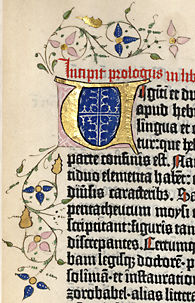 Incipit prologus in lib
Vigīti et du
apud hebr
lingua et
tur: que heb
parte confinis est. Na
ti duo elementa habēt:
diūsis caracterib⁹.
pentatheucum moysi
scriptitāt: figuris tan
discrepantes. Certum
bam legisq; doctorē· p
solimā et instauration
zorobabel·alias litter